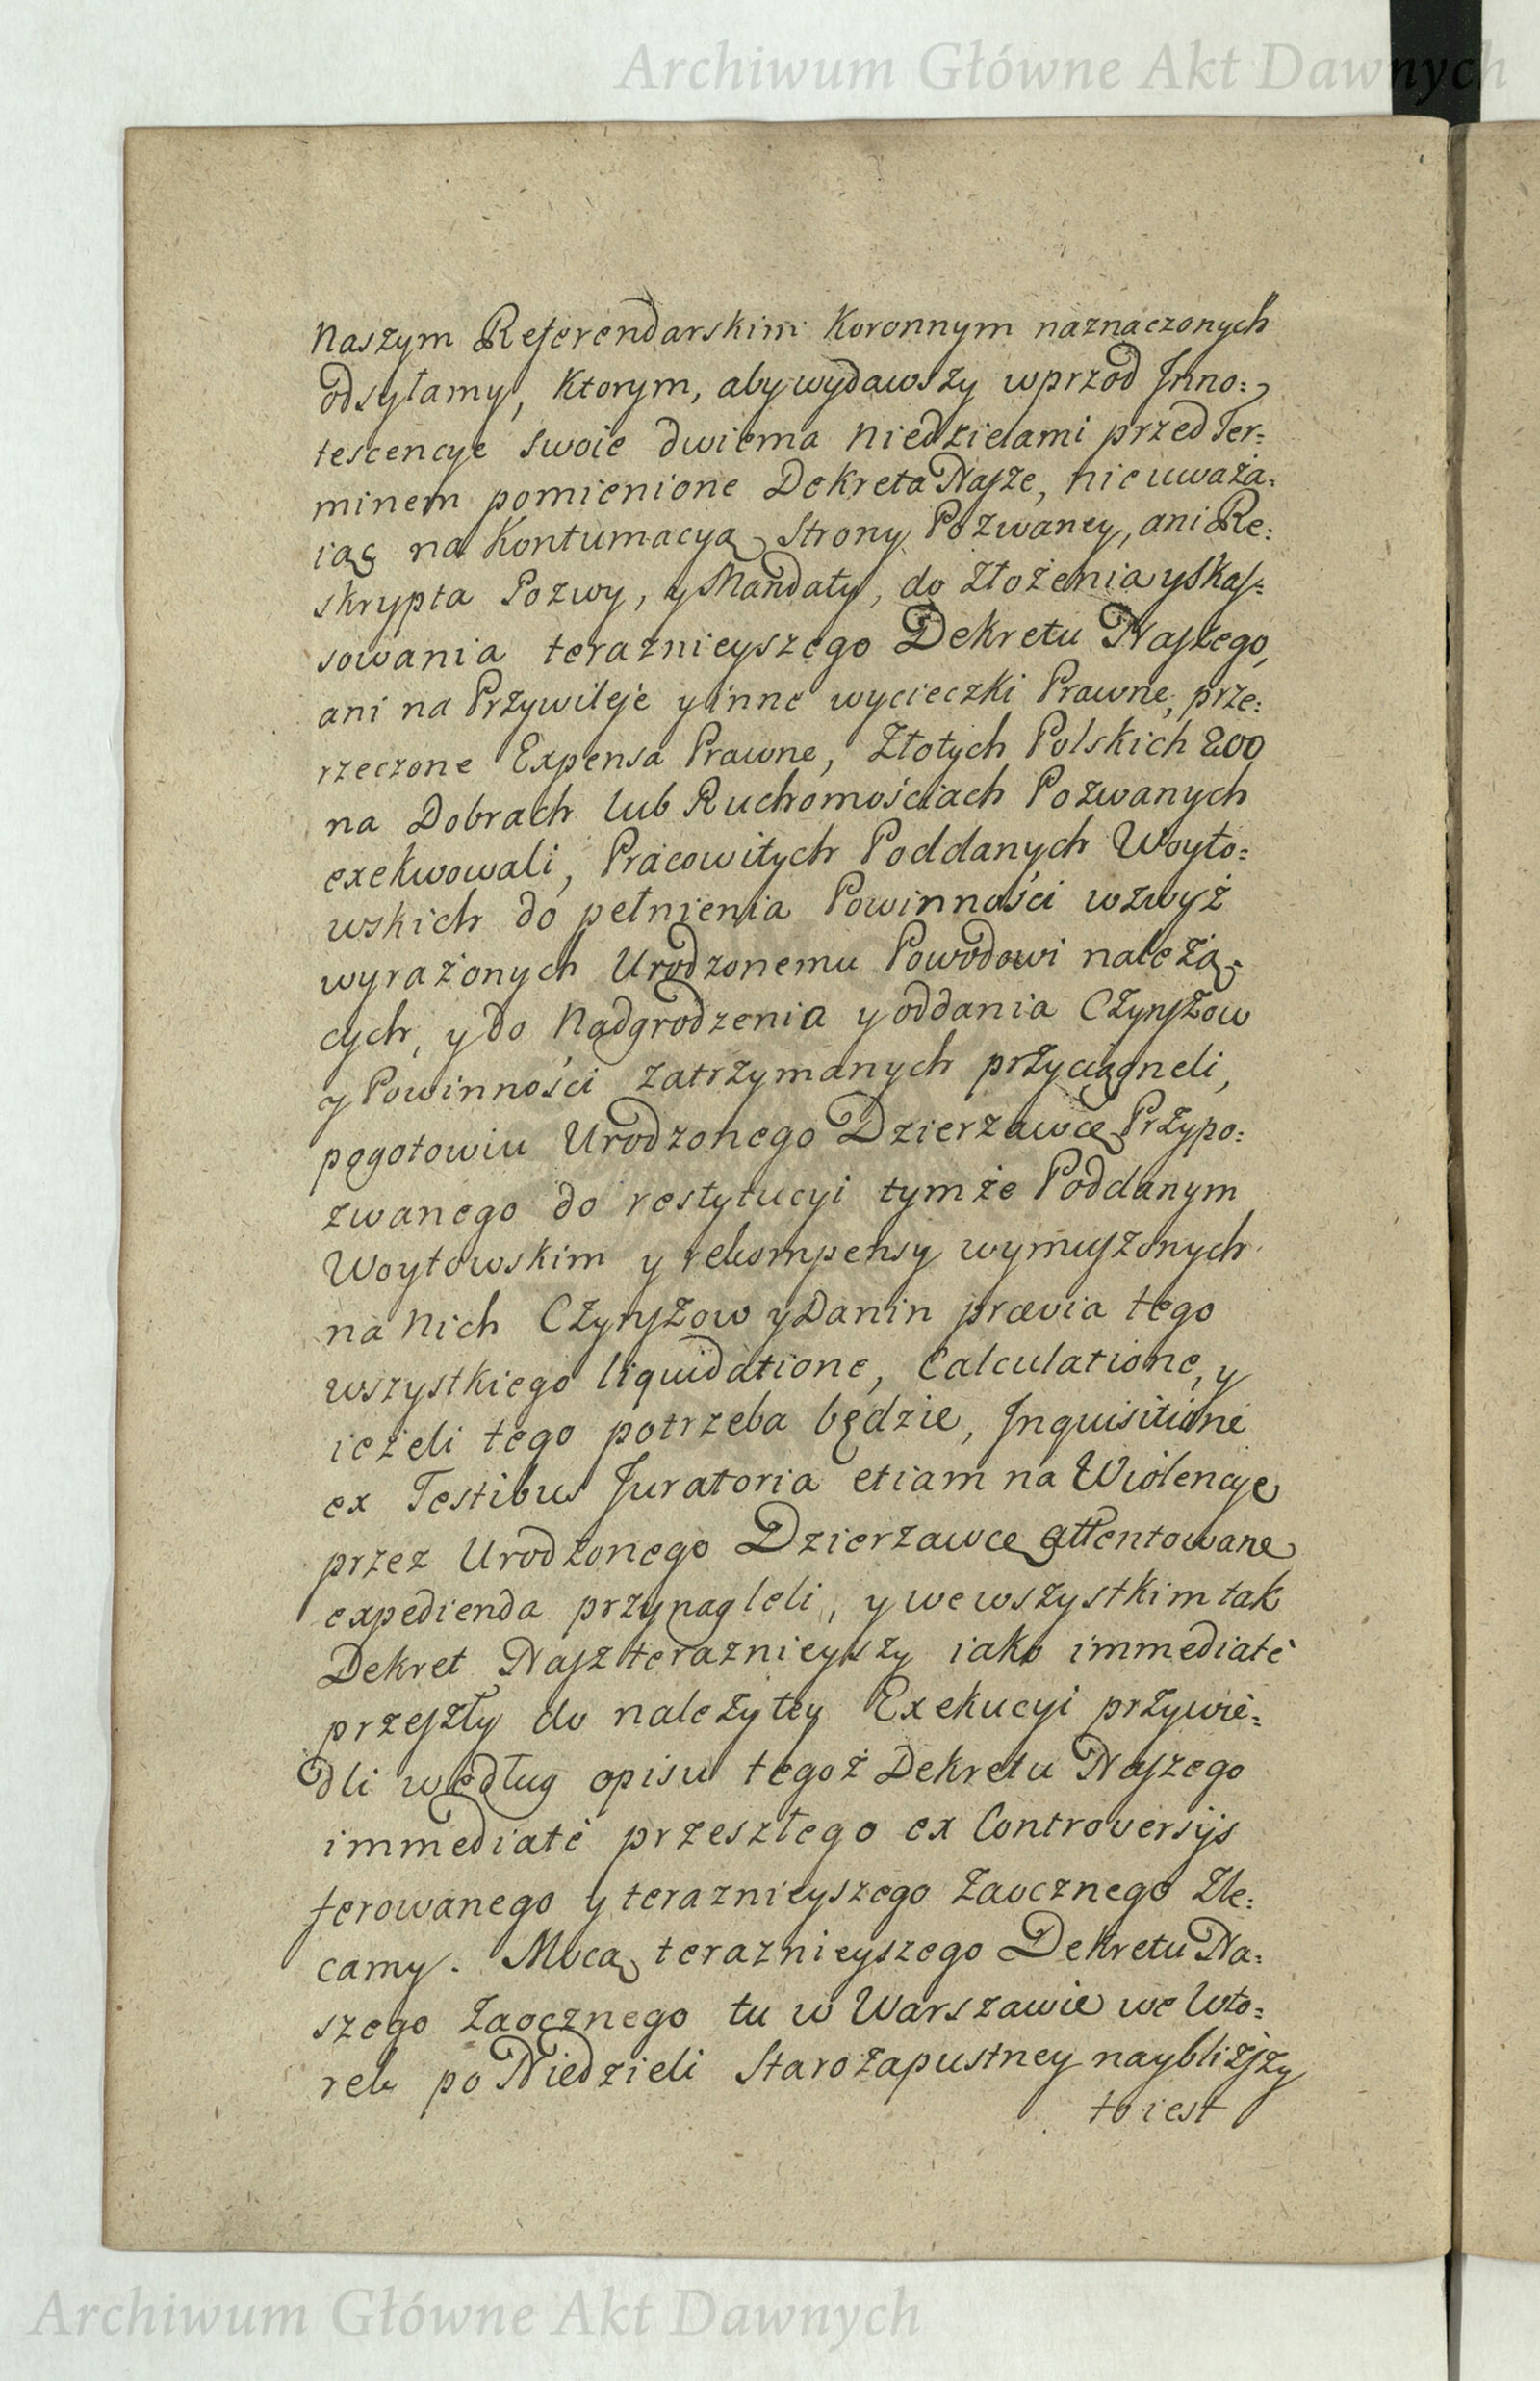 Archiwum Główne Akt Dawnych
naszym Referendarskim Koronnym naznaczonych
odsyłamy, Ktorym, aby wydawszy wprzod Inno=
tescencye swoie dwiema Niedzielami przed Ter=
minem pomienione Dekreta Nasze, nieuważa=
iąc na Kontumacyą Strony Pozwaney, ani Re=
skrypta Pozwy, y Mandaty, do złożenia y Skas=
sowania teraznieyszego Dekretu Naszego,
ani na Przywileje y inne wycieczki Prawne, prze=
rzeczone Expensa Prawne, Złotych Polskich 200
na Dobrach lub Ruchomościach Pozwanych
exekwowali, Pracowitych Poddanych Woyto=
wskich do pełnienia Powinności wzwyż
wyrażonych Urodzonemu Powodowi należą=
cych, y do Nadgrodzenia y oddania Czynszow
y Powinności zatrzymanych przyciągneli,
pogotowiu Urodzonego Dzierzawcę Przypo=
zwanego do restytucyi tymże Poddanym
Woytowskim y rekompensy wymuszonych
na Nich Czynszow y Danin prævia tego
wszystkiego liquidatione, Calculatione, y
ieżeli tego potrzeba będzie, Inquisitione
ex Testibus Juratoria etiam na Wiolencye
przez Urodzonego Dzierzawcę attentowane
expedienda przynagleli, y we wszystkim tak
Dekret Nasz teraznieyszy iako immediatè
przeszły do należytey Exekucyi przywie=
dli według opisu tegoż Dekretu Naszego
immediatè przeszłego ex Controversijs
ferowanego y teraznieyszego Zaocznego Zle=
camy. Mocą teraznieyszego Dekretu Na=
szego Zaocznego tu w Warszawie we Wto=
rek po Niedzieli Starozapustney naybliższy
to iest
Archiwum Główne Akt Dawnych